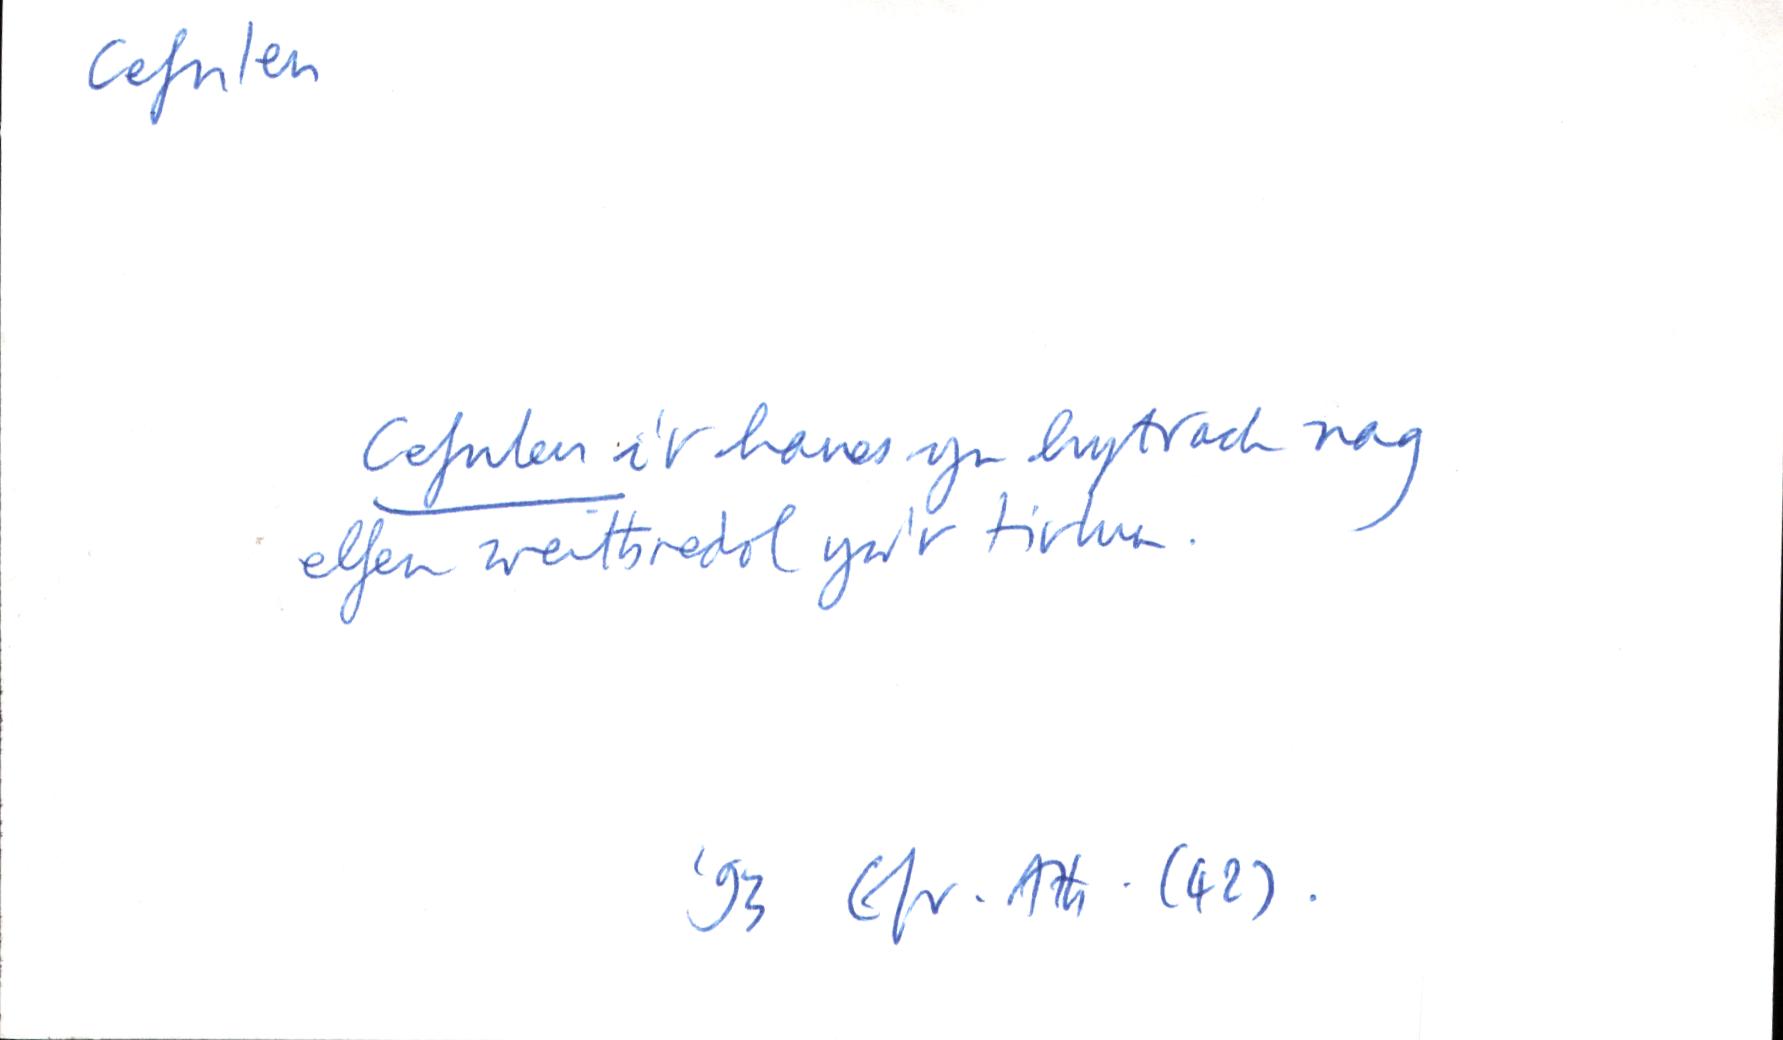 Cefnlen
Cefnlen i'r hanes yn hytrach nag
elfen weithredol yw'r tirlun.
'93 Efr. Ath. (42).